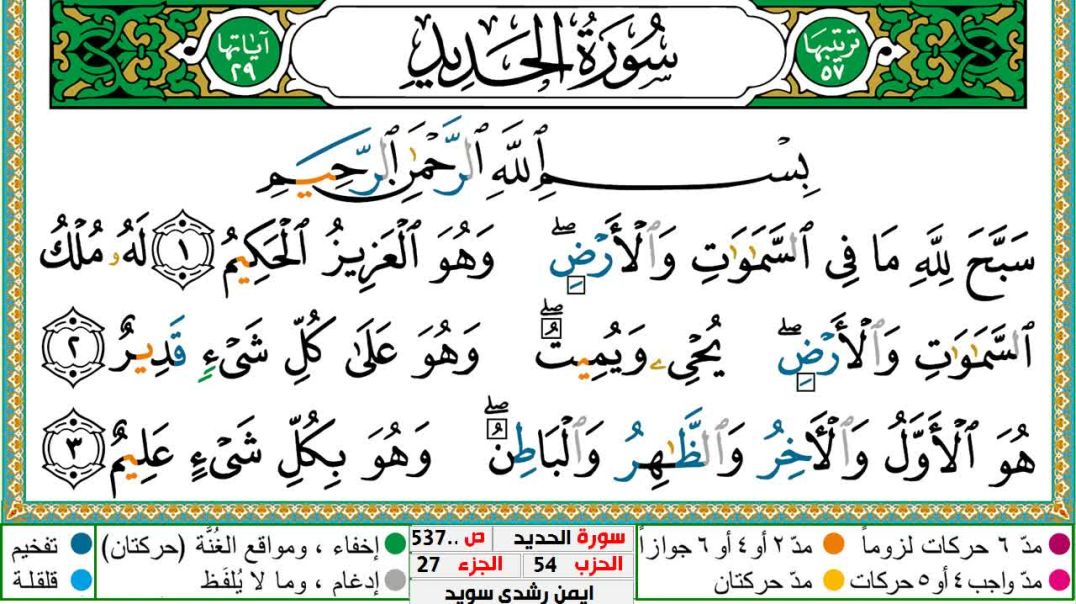 ترتيبها ٥٧
سُورَةُ الْحَدِيدِ
آيَاتها ٢٩
بِسْمِ ٱللَّهِ ٱلرَّحْمَٰنِ ٱلرَّحِيمِ
سَبَّحَ لِلَّهِ مَا فِى ٱلسَّمَٰوَٰتِ وَٱلْأَرْضِ ۖ وَهُوَ ٱلْعَزِيزُ ٱلْحَكِيمُ ١ لَهُۥ مُلْكُ
ٱلسَّمَٰوَٰتِ وَٱلْأَرْضِ ۖ يُحْىِۦ وَيُمِيتُ ۖ وَهُوَ عَلَىٰ كُلِّ شَىْءٍ قَدِيرٌ ٢
هُوَ ٱلْأَوَّلُ وَٱلْأَخِرُ وَٱلظَّٰهِرُ وَٱلْبَاطِنُ ۖ وَهُوَ بِكُلِّ شَىْءٍ عَلِيمٌ ٣
مدّ ٦ حركات لزوماً
مدّ ٢ أو ٤ أو ٦ جوازاً
سورة الحديد
ص ..537
إخفاء ، ومواقع الغُنَّة (حركتان)
تفخيم
مدّ واجب ٤ أو ٥ حركات
مدّ حركتان
الحزب 54
الجزء 27
إدغام ، وما لا يُلفَظ
قلقلة
ايمن رشدي سويد